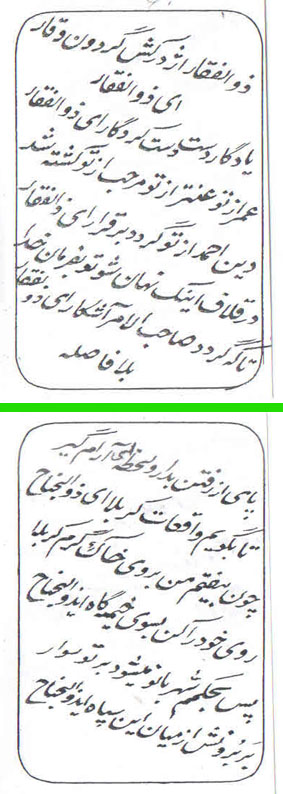 ذوالفقار اژدرکش گردون وقار
ای ذوالفقار
یادگار دست دست کردگار ای ذوالفقار
عمر از تو عنتر از تو مرحب از تو کشته شد
دین احمد از تو گردد برقرار ای ذوالفقار
در قلاف اینک نهان شو تو بفرمان خدا
تا که گردد صاحب الامر آشکار ای ذوالفقار
بلا فاصله
پا پی از رفتن بدار و لحظه‌ای آرام گیر
تا بگویم واقعات کربلا ای ذوالجناح
چون بیفتم من بروی خاک گرم کربلا
روی خود را کن بسوی خیمه‌گاه ایذوالجناح
پس بحکمم شهربانو میشود بر تو سوار
بر برونش از میان این سپاه ایذوالجناح